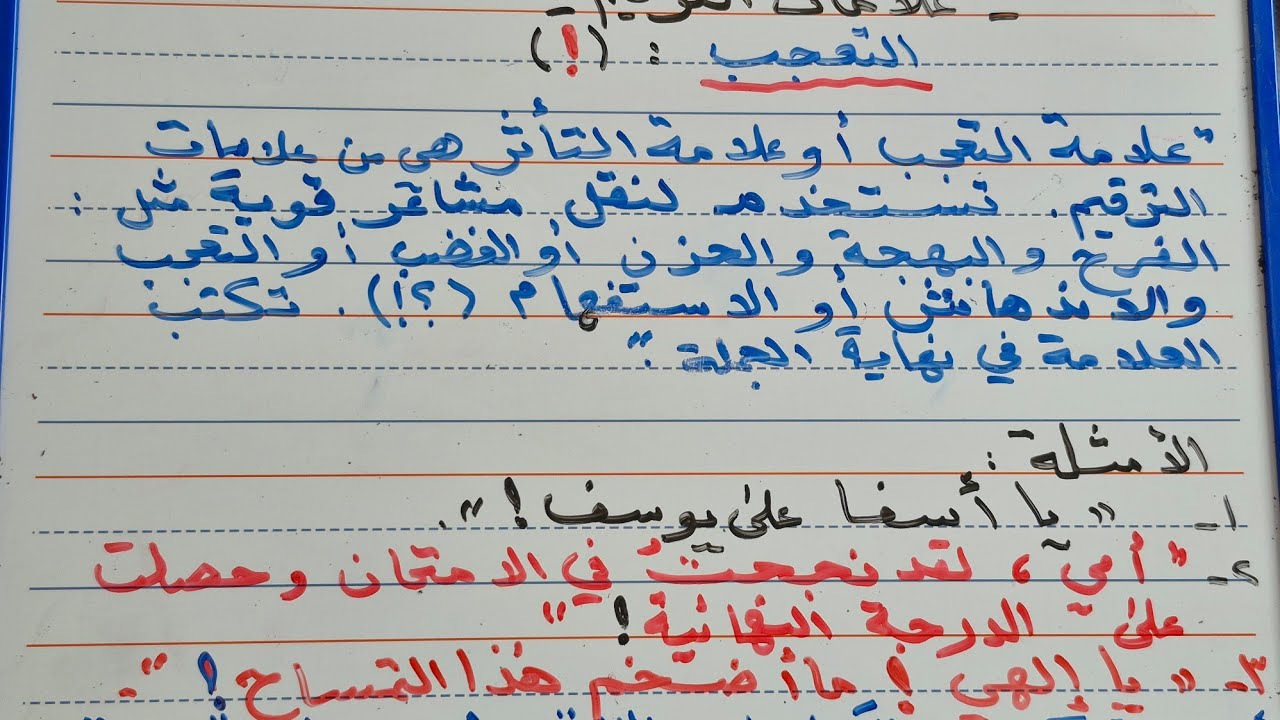 - علامات الترقيم -
التعجب : (!)
"علامة التعجب أو علامة التأثر هي من علامات
الترقيم. تستخدم لنقل مشاعر قوية مثل :
الفرح والبهجة والحزن أو الغضب أو التعجب
والاندهاش أو الاستفهام (؟!). تكتب
العلامة في نهاية الجملة."
الأمثلة :
١- «يا أسفا على يوسف!».
٢- "أمي، لقد نجحتُ في الامتحان وحصلت
على الدرجة النهائية!"
٣- «يا إلهي! ما أضخم هذا التمساح!».